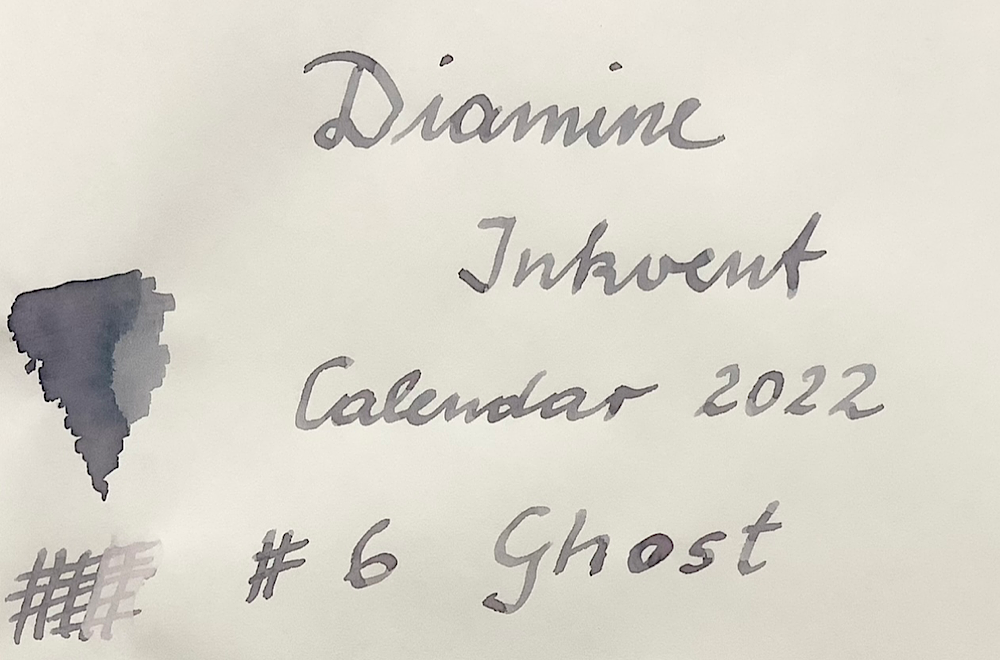 Diamine
Inkvent
Calendar 2022
# 6 Ghost